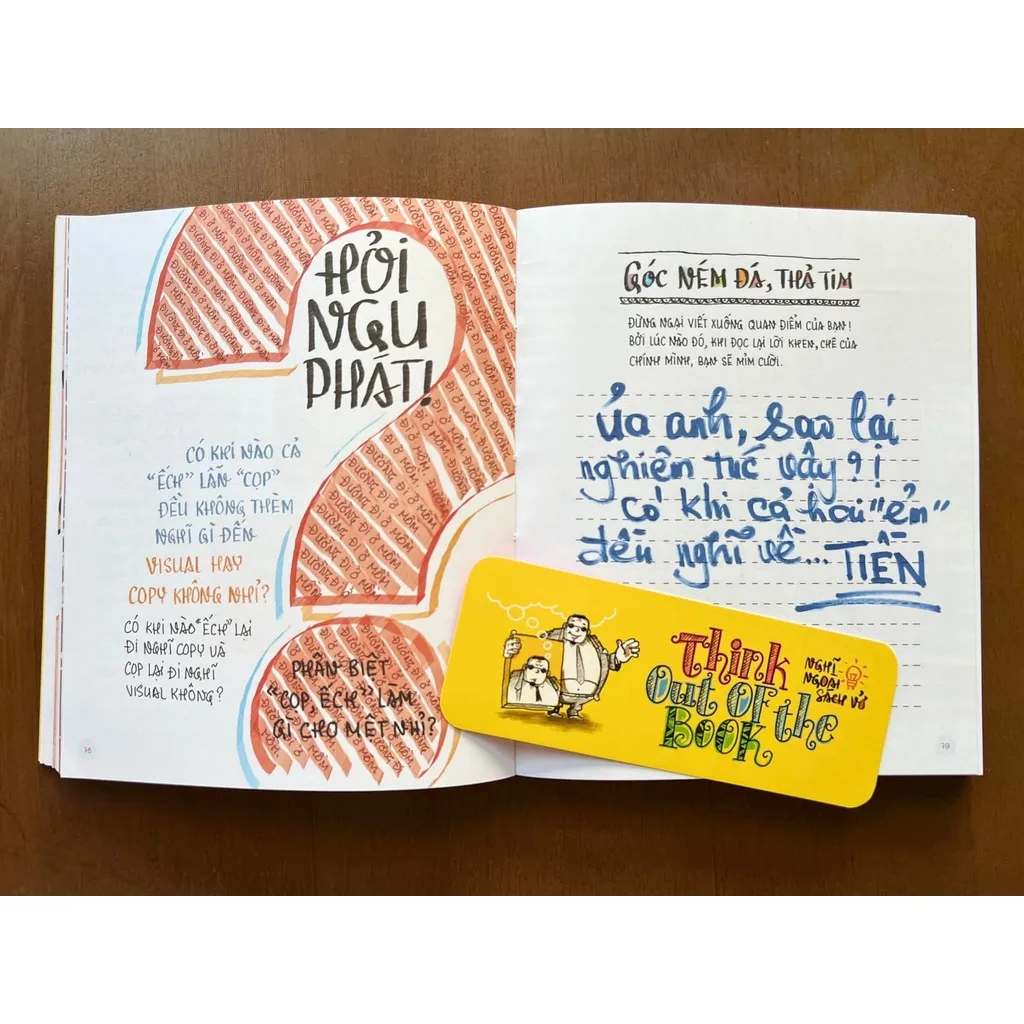 HỞI
NGU
PHÁT!
CÓ KHI NÀO CẢ
"ẾCH" LẪN "CỌP"
ĐỀU KHÔNG THÈM
NGHĨ GÌ ĐẾN
VISUAL HAY
COPY KHÔNG NHỈ?
CÓ KHI NÀO "ẾCH" LẠI
ĐI NGHĨ COPY VÀ
CỌP LẠI ĐI NGHĨ
VISUAL KHÔNG?
PHÂN BIỆT
"CỌP, ẾCH" LÀM
GÌ CHO MỆT NHỈ?
ĐƯỜNG ĐI Ở MỒM
78
GÓC NÉM ĐÁ, THẢ TIM
ĐỪNG NGẠI VIẾT XUỐNG QUAN ĐIỂM CỦA BẠN!
BỞI LÚC NÀO ĐÓ, KHI ĐỌC LẠI LỜI KHEN, CHÊ CỦA
CHÍNH MÌNH, BẠN SẼ MỈM CƯỜI.
Ủa anh, sao lại
nghiêm túc vậy?!
Có khi cả hai "ẻm"
đều nghĩ về... TIỀN
Think
Out Of the
Book
NGHĨ
NGOÀI
SÁCH VỞ
79